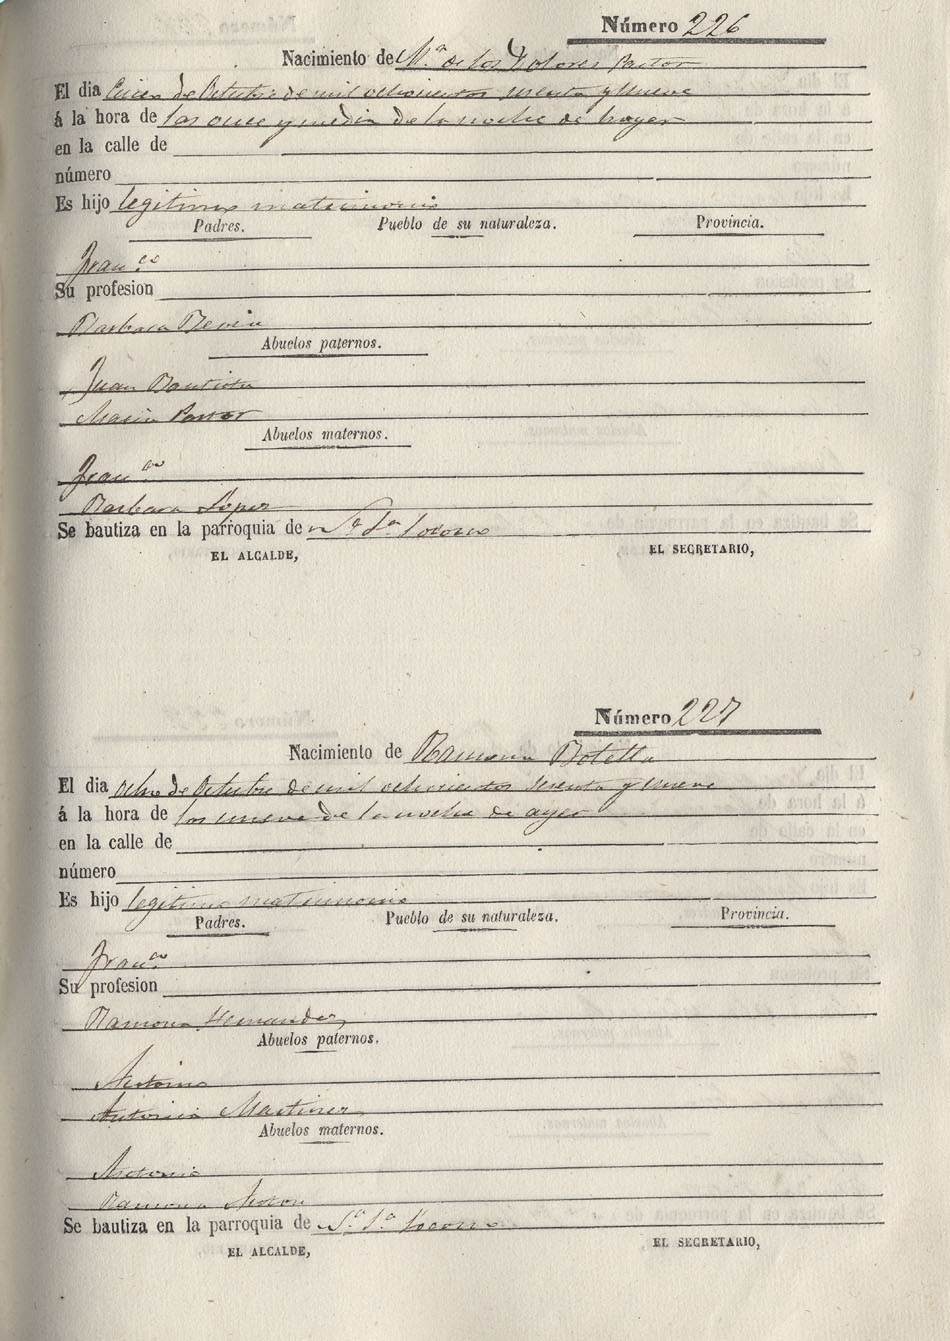 Número 226
Nacimiento de Mª de los Dolores Pastor
El dia de Octubre de mil ochocientos sesenta y nueve
á la hora de las once y media de la noche de
en la calle de
número
Es hijo legitimo matrimonio
Padres. Pueblo de su naturaleza. Provincia.
Fran.co
Su profesion
Barbara
Abuelos paternos.
Juan Bautista
Maria Pastor
Abuelos maternos.
Fran.co
Barbara Lopez
Se bautiza en la parroquia de
EL ALCALDE, EL SECRETARIO,
Número 227
Nacimiento de Ramona Botella
El dia ocho de Octubre de mil ochocientos sesenta y nueve
á la hora de las nueve de la noche de ayer
en la calle de
número
Es hijo legitimo matrimonio
Padres. Pueblo de su naturaleza. Provincia.
Fran.co
Su profesion
Ramona Hernandez
Abuelos paternos.
Antonio
Antonia Martinez
Abuelos maternos.
Antonio
Ramona
Se bautiza en la parroquia de
EL ALCALDE, EL SECRETARIO,